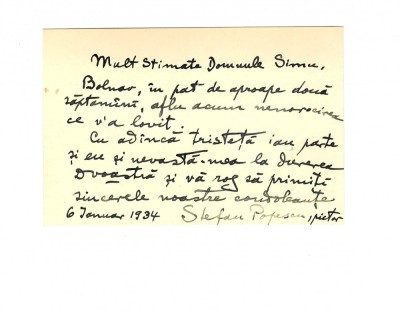 Mult Stimate Domnule Simu,
Bolnav, în pat de aproape două
săptămîni, aflu acum nenorocirea
ce v'a lovit.
Cu adîncă tristeță iau parte
și eu și nevastă-mea la durerea
Dvoastră și vă rog să primiți
sincerele noastre condoleanțe
6 Ianuar 1934 Stefan Popescu, pictor